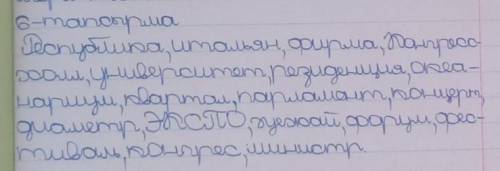 6-тапсырма
Республика, итальян, фирма, Конгресс-
холл, университет, резиденция, океа-
нариум, квартал, парламент, концерт,
диаметр, ЭКСПО, жекжай, форум, фес-
тиваль, конгрес, министр.